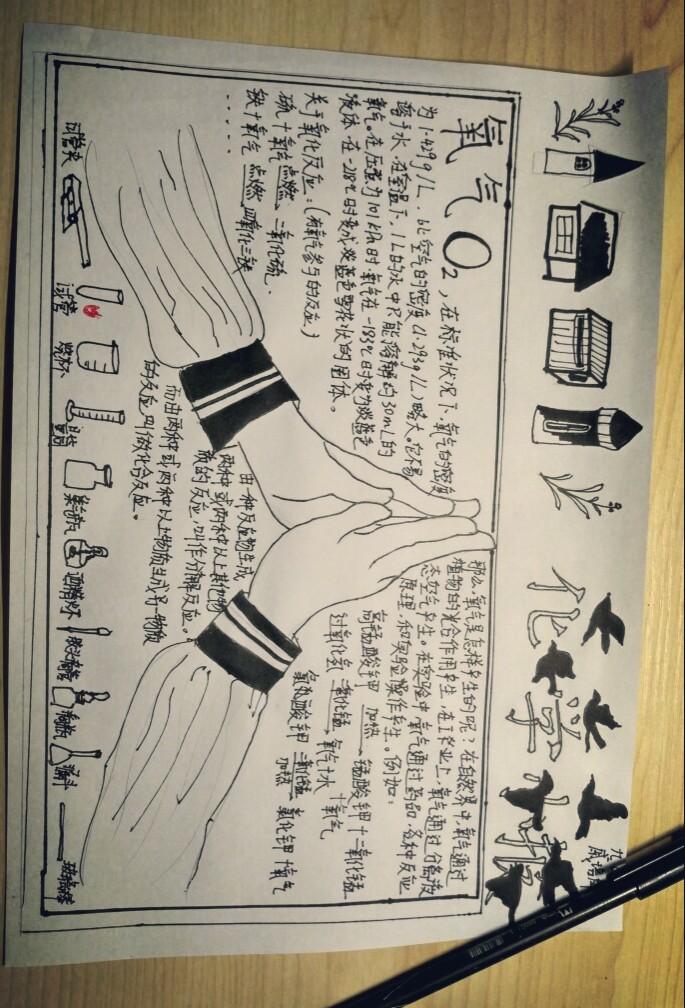 化学小报
氧气 O₂，在标准状况下，氧气的密度
为1.429g/L，比空气的密度(1.293g/L)略大。它不易
溶于水，在室温下，1L的水中只能溶解约30mL的
氧气。在压强为101kPa时，氧气在-183℃时变为淡蓝色
液体，在-218℃时变成淡蓝色雪花状的固体。
关于氧化反应：(有氧气参与的反应)
硫+氧气 点燃 二氧化硫
铁+氧气 点燃 四氧化三铁
......
那么，氧气是怎样产生的呢？在自然界中，氧气通过
植物的光合作用产生，在工业上，氧气通过分离液
态空气产生。在实验中，氧气通过药品，各种反应
原理，和实验操作产生。例如：
高锰酸钾 加热 锰酸钾+二氧化锰
+氧气
过氧化氢 二氧化锰 氧气+水
氯酸钾 二氧化锰 加热 氯化钾+氧气
由一种反应物生成
两种或两种以上其他物
质的反应，叫作分解反应。
而由两种或两种以上物质生成另一物质
的反应，叫做化合反应。
试管夹
试管
烧杯
量筒
集气瓶
酒精灯
胶头滴管
漏斗
玻璃棒